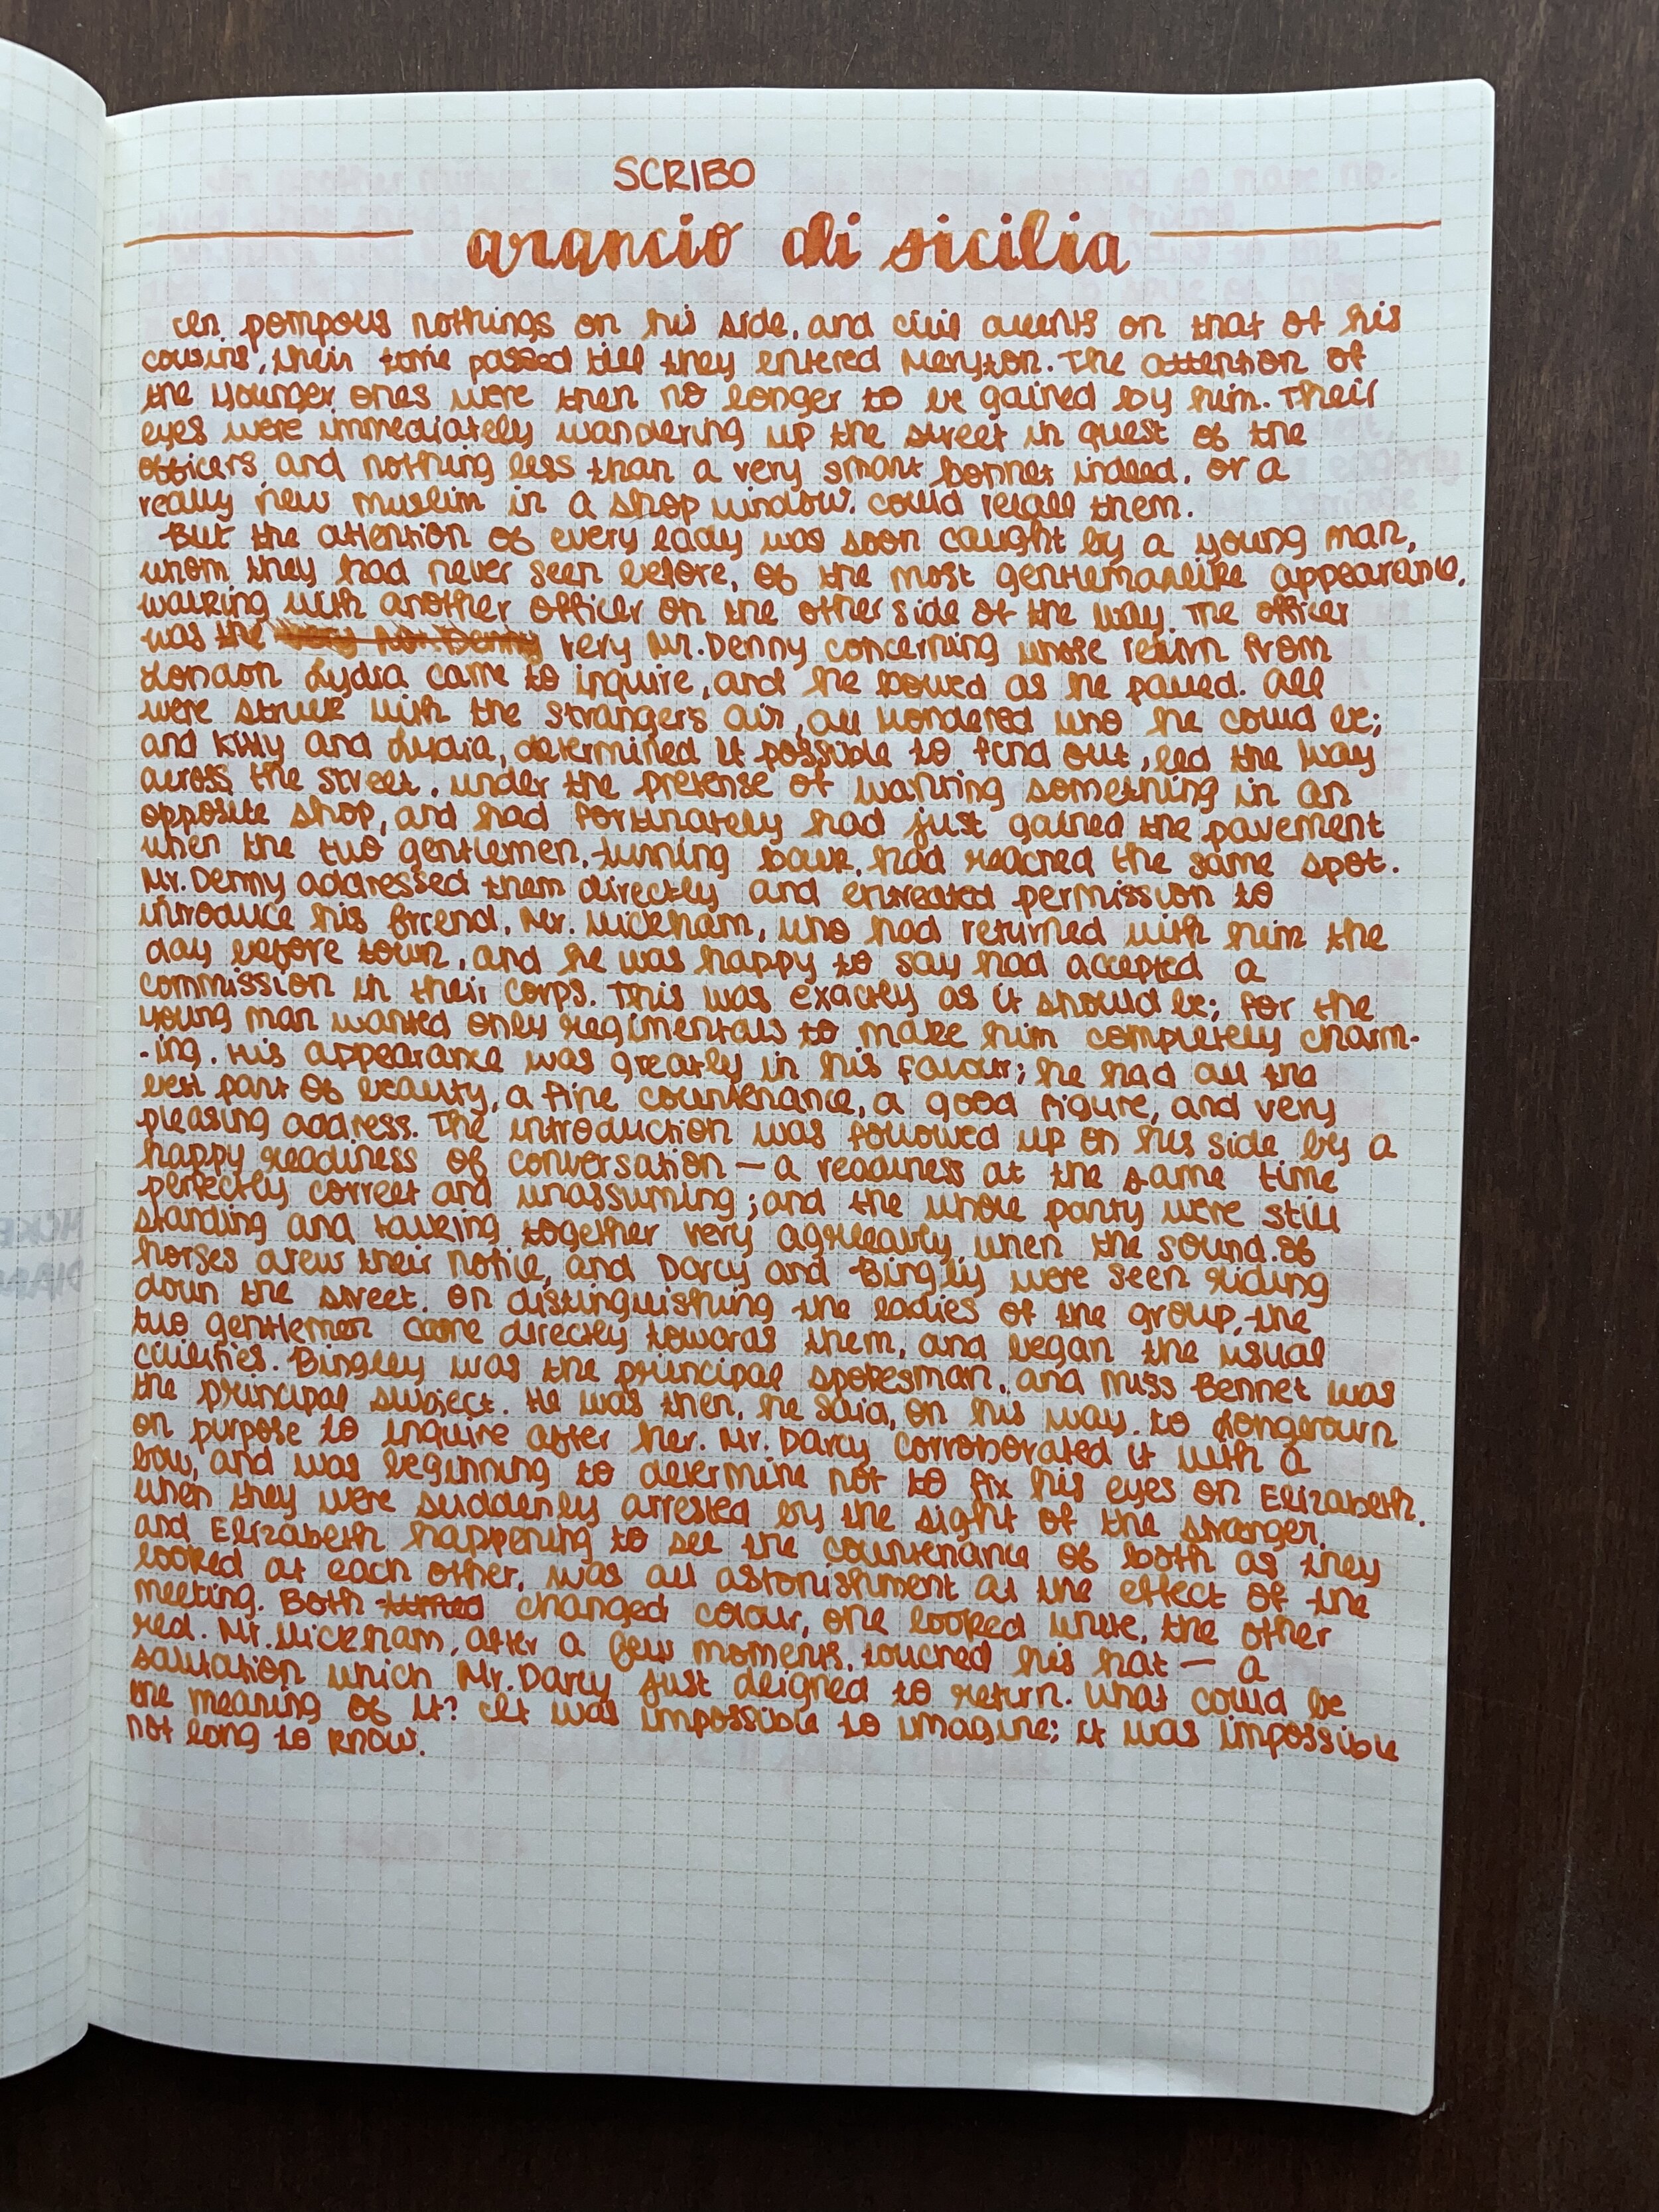 SCRIBO
arancio di sicilia
In pompous nothings on his side, and civil assents on that of his
cousins, their time passed till they entered Meryton. The attention of
the younger ones were then no longer to be gained by him. Their
eyes were immediately wandering up the street in quest of the
officers, and nothing less than a very smart bonnet indeed, or a
really new muslim in a shop window, could recall them.
But the attention of every lady was soon caught by a young man,
whom they had never seen before, of the most gentlemanlike appearance,
walking with another officer on the other side of the way. The officer
was the very Mr. Denny concerning whose return from
London Lydia came to inquire, and he bowed as he passed. All
were struck with the stranger's air, all wondered who he could be;
and Kitty and Lydia, determined if possible to find out, led the way
across the street, under the pretense of wanting something in an
opposite shop, and had fortunately had just gained the pavement
when the two gentlemen, turning back, had reached the same spot.
Mr. Denny addressed them directly and entreated permission to
introduce his friend, Mr. Wickham, who had returned with him the
day before town, and he was happy to say had accepted a
commission in their corps. This was exactly as it should be; for the
young man wanted only regimentals to make him completely charm-
-ing. His appearance was greatly in his favour; he had all the
best part of beauty, a fine countenance, a good figure, and very
pleasing address. The introduction was followed up on his side by a
happy readiness of conversation — a readiness at the same time
perfectly correct and unassuming; and the whole party were still
standing and talking together very agreeably, when the sound of
horses drew their notice, and Darcy and Bingley were seen riding
down the street. On distinguishing the ladies of the group, the
two gentlemen came directly towards them, and began the usual
civilities. Bingley was the principal spokesman, and Miss Bennet was
the principal subject. He was then, he said, on his way to Longbourn
on purpose to inquire after her. Mr. Darcy corroborated it with a
bow, and was beginning to determine not to fix his eyes on Elizabeth,
when they were suddenly arrested by the sight of the stranger,
and Elizabeth happening to see the countenance of both as they
looked at each other, was all astonishment at the effect of the
meeting. Both changed colour, one looked white, the other
red. Mr. Wickham, after a few moments, touched his hat — a
salutation which Mr. Darcy just deigned to return. What could be
the meaning of it? It was impossible to imagine; it was impossible
not long to know.